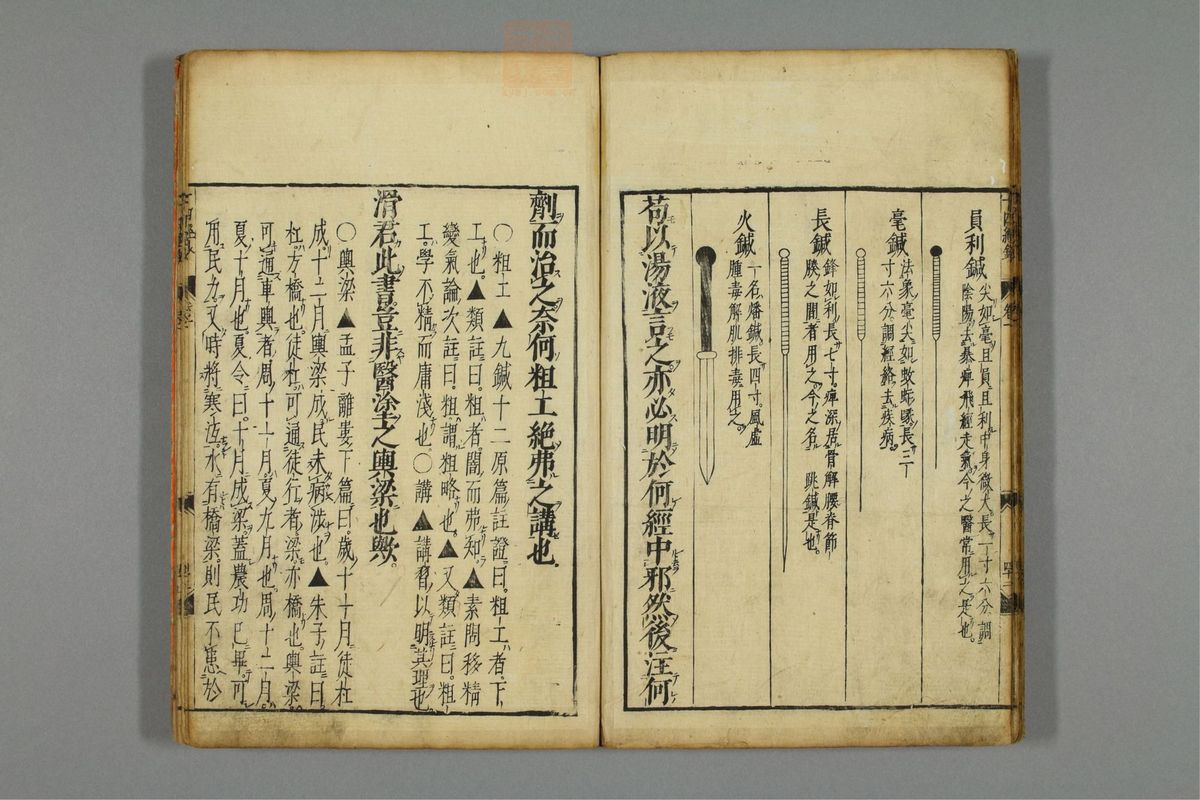 員利鍼
尖如毫且員且利中身微大長一寸六分調
陰陽去暴痺飛經走氣今之醫常用之是也
毫鍼
法象毫尖如蚊虻喙長三
寸六分調經絡去疾病
長鍼
鋒如利長七寸痺深居骨解腰脊節
腠之間者用之今之名 跳鍼是也
火鍼
一名燔鍼長四寸風虛
腫毒解肌排毒用之
苟以湯液言之亦必明於何經中邪然後注何
劑而治之奈何粗工絶弗之講也
〇粗工▲九鍼十二原篇註證曰粗工者下
工也▲類註曰粗者闇而弗知▲素問移精
變氣論次註曰粗謂粗略也▲又類註曰粗
工學不精而庸淺也〇講▲講習以明其理也
滑君此書豈非醫塗之輿梁也歟
〇輿梁▲孟子離婁下篇曰歲十一月徒杠
成十二月輿梁成民未病涉也▲朱子註曰
杠方橋也徒杠可通徒行者梁亦橋也輿梁
可通車輿者周十一月夏九月也周十二月
夏十月也夏令曰十月成梁蓋農功已畢可
用民力又時將寒沍水有橋梁則民不患於